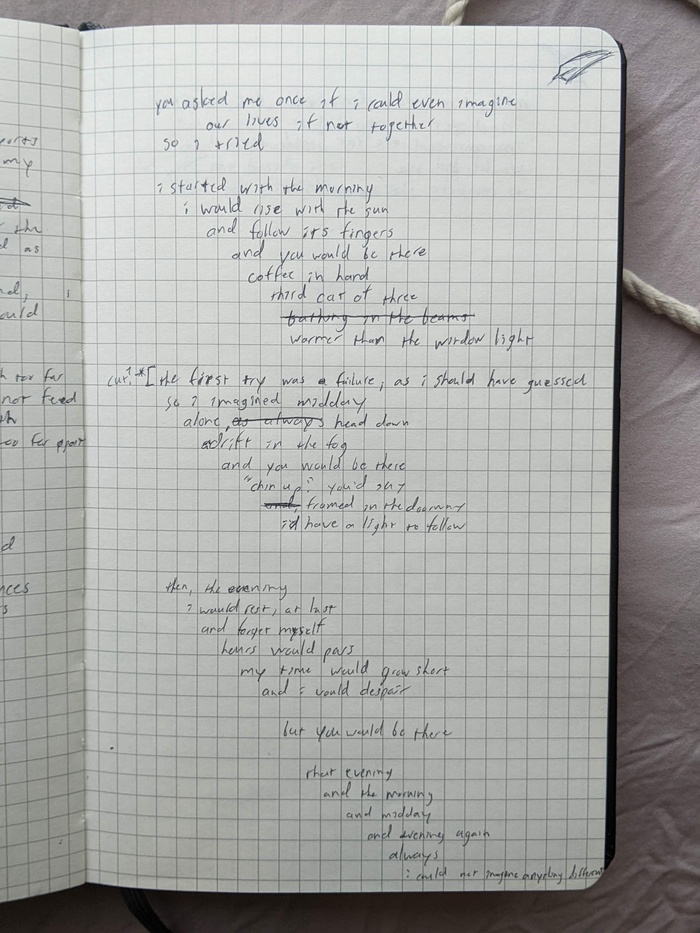 ports
my
as
ould
not feed
nces
you asked me once if i could even imagine
our lives if not together
so i tried
i started with the morning
i would rise with the sun
and follow its fingers
and you would be there
coffee in hand
third cat of three
bathing in the beams
warmer than the window light
cut? *[ the first try was a failure, as i should have guessed
so i imagined midday
alone, as always head down
adrift in the fog
and you would be there
"chin up" you'd say
and, framed in the doorway
i'd have a light to follow
then, the evening
i would rest, at last
and forget myself
hours would pass
my time would grow short
and i would despair
but you would be there
that evening
and the morning
and midday
and evening again
always
i could not imagine anything different